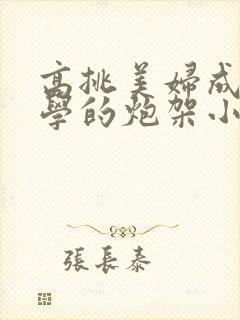 高挑美婦成
學的炮架小
張長泰